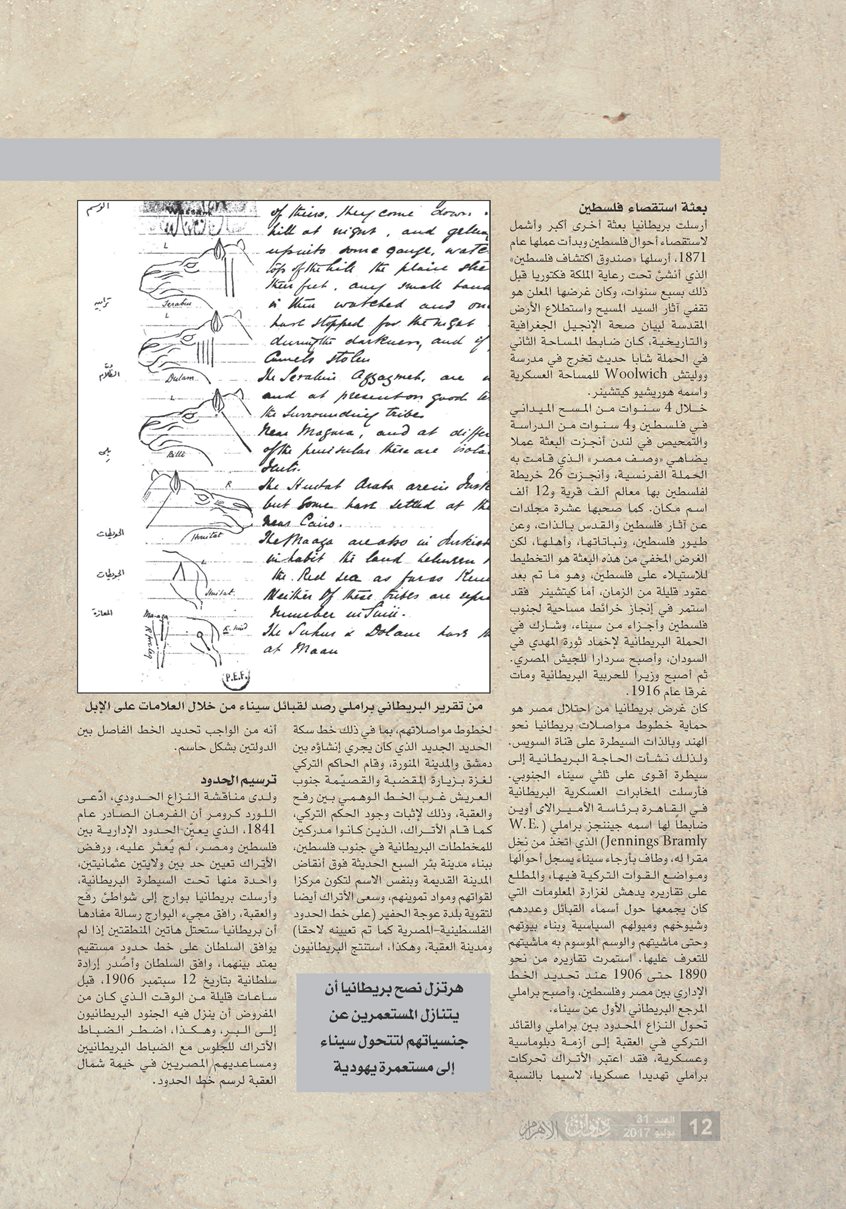 بعثة استقصاء فلسطين
أرسلت بريطانيا بعثة أخرى أكبر وأشمل
لاستقصاء أحوال فلسطين وبدأت عملها عام
1871، أرسلها «صندوق اكتشاف فلسطين»
الذي أنشئ تحت رعاية الملكة فكتوريا قبل
ذلك بسبع سنوات، وكان غرضها المعلن هو
تقفي آثار السيد المسيح واستطلاع الأرض
المقدسة لبيان صحة الإنجيل الجغرافية
والتاريخية، كان ضابط المساحة الثاني
في الحملة شابا حديث تخرج في مدرسة
وولیتش Woolwich للمساحة العسكرية
واسمه هوريشيو كيتشينر.
خلال 4 سنوات من المسح الميداني
في فلسطين و4 سنوات من الدراسة
والتمحيص في لندن أنجزت البعثة عملا
يضاهي «وصف مصر» الذي قامت به
الحملة الفرنسية، وأنجزت 26 خريطة
لفلسطين بها معالم ألف قرية و12 ألف
اسم مكان. كما صحبها عشرة مجلدات
عن آثار فلسطين والقدس بالذات، وعن
طيور فلسطين، ونباتاتها، وأهلها، لكن
الغرض المخفي من هذه البعثة هو التخطيط
للاستيلاء على فلسطين، وهو ما تم بعد
عقود قليلة من الزمان، أما كيتشينر فقد
استمر في إنجاز خرائط مساحية لجنوب
فلسطين وأجزاء من سيناء، وشارك في
الحملة البريطانية لإخماد ثورة المهدي في
السودان، وأصبح سردارا للجيش المصري.
ثم أصبح وزيرا للحربية البريطانية ومات
غرقا عام 1916.
كان غرض بريطانيا من احتلال مصر هو
حماية خطوط مواصلات بريطانيا نحو
الهند وبالذات السيطرة على قناة السويس.
ولذلك نشأت الحاجة البريطانية إلى
سيطرة أقوى على ثلثي سيناء الجنوبي.
فأرسلت المخابرات العسكرية البريطانية
في القاهرة برئاسة الأميرالاى أوين
ضابطاً لها اسمه جيننجز براملي (W.E.
Jennings Bramly) الذي اتخذ من نخل
مقرا له، وطاف بأرجاء سيناء يسجل أحوالها
ومواضع القوات التركية فيها، والمطلع
على تقاريره يدهش لغزارة المعلومات التي
كان يجمعها حول أسماء القبائل وعددهم
وشيوخهم وميولهم السياسية وبناء بيوتهم
وحتى ماشيتهم والوسم الموسوم به ماشيتهم
للتعرف عليها. استمرت تقاريره من نحو
1890 حتى 1906 عند تحديد الخط
الإداري بين مصر وفلسطين، وأصبح براملي
المرجع البريطاني الأول عن سيناء.
تحول النزاع المحدود بين براملي والقائد
التركي في العقبة إلى أزمة دبلوماسية
وعسكرية، فقد اعتبر الأتراك تحركات
براملي تهديدا عسكريا، لاسيما بالنسبة
الوسم
Wassam
of theirs. They come down
hill at night, and
upints some gauge,
top of the hill the plains
their feet. any small
is then watched and
have stopped for the night
during the darkness, and if
Camels stolen
The Serabin Azzagmeh, are
and at present on good
the surrounding tribe
Near Magara, and at
of the peninsular there are
Huts.
The Huitat Arabs are in
but some have settled at the
near Cairo.
The Maaza are also in
inhabit the land between
the Red sea as far as Kene
Neither of these tribes are
number in Sinai.
The Suhur & Dolam have
at Maan
L
Serabin
ترابين
L
Dulam
الظلام
Billi
بلي
R
Huitat
الحويطات
L
Huitat
الحويطات
Maaza
المعازة
P.E.F.
من تقرير البريطاني براملي رصد لقبائل سيناء من خلال العلامات على الإبل
لخطوط مواصلاتهم، بما في ذلك خط سكة
الحديد الجديد الذي كان يجري إنشاؤه بين
دمشق والمدينة المنورة، وقام الحاكم التركي
لغزة بزيارة المقضبة والقصيّمة جنوب
العريش غرب الخط الوهمي بين رفح
والعقبة، وذلك لإثبات وجود الحكم التركي،
كما قام الأتراك، الذين كانوا مدركين
للمخططات البريطانية في جنوب فلسطين،
ببناء مدينة بئر السبع الحديثة فوق أنقاض
المدينة القديمة وبنفس الاسم لتكون مركزا
لقواتهم ومواد تموينهم، وسعى الأتراك أيضا
لتقوية بلدة عوجة الحفير (على خط الحدود
الفلسطينية-المصرية كما تم تعيينه لاحقا)
ومدينة العقبة، وهكذا، استنتج البريطانيون
هرتزل نصح بريطانيا أن
يتنازل المستعمرين عن
جنسياتهم لتتحول سيناء
إلى مستعمرة يهودية
أنه من الواجب تحديد الخط الفاصل بين
الدولتين بشكل حاسم.
ترسيم الحدود
ولدى مناقشة النزاع الحدودي، ادّعى
اللورد كرومر أن الفرمان الصادر عام
1841، الذي يعيّن الحدود الإدارية بين
فلسطين ومصر، لم يُعثر عليه، ورفض
الأتراك تعيين حد بين ولايتين عثمانيتين،
واحدة منها تحت السيطرة البريطانية،
وأرسلت بريطانيا بوارج إلى شواطئ رفح
والعقبة، رافق مجيء البوارج رسالة مفادها
أن بريطانيا ستحتل هاتين المنطقتين إذا لم
يوافق السلطان على خط حدود مستقيم
يمتد بينهما، وافق السلطان وأصدر إرادة
سلطانية بتاريخ 12 سبتمبر 1906، قبل
ساعات قليلة من الوقت الذي كان من
المفروض أن ينزل فيه الجنود البريطانيون
إلى البر، وهكذا، اضطر الضباط
الأتراك للجلوس مع الضباط البريطانيين
ومساعديهم المصريين في خيمة شمال
العقبة لرسم خط الحدود.
12
العدد 31
يوليو 2017
ديوان
الأهرام